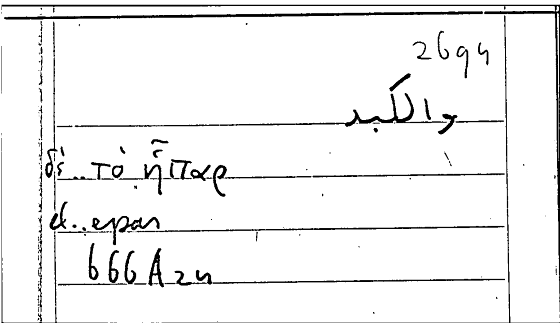 2694
والكبد
δὲ.. τὸ ἧπαρ
et..epar
666A24